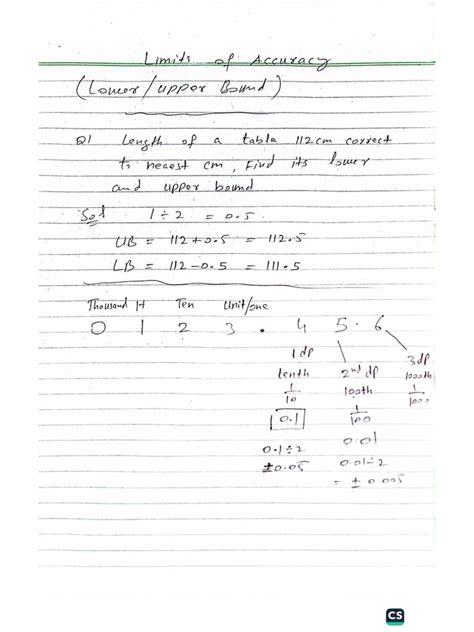 Limits of Accuracy
(Lower/upper Bound)
Q1 Length of a tabla 112cm correct
to nearest cm, Find its lower
and upper bound
Sol 1÷2 = 0.5
UB = 112+0.5 = 112.5
LB = 112-0.5 = 111.5
Thousand H Ten Unit/one
0 1 2 3 . 4 5 . 6
1 dp 2nd dp 3dp
tenth 100th 1000th
1/10 1/100 1/1000
0.1 0.01
0.1÷2 0.01÷2
±0.05 = ±0.005
CS